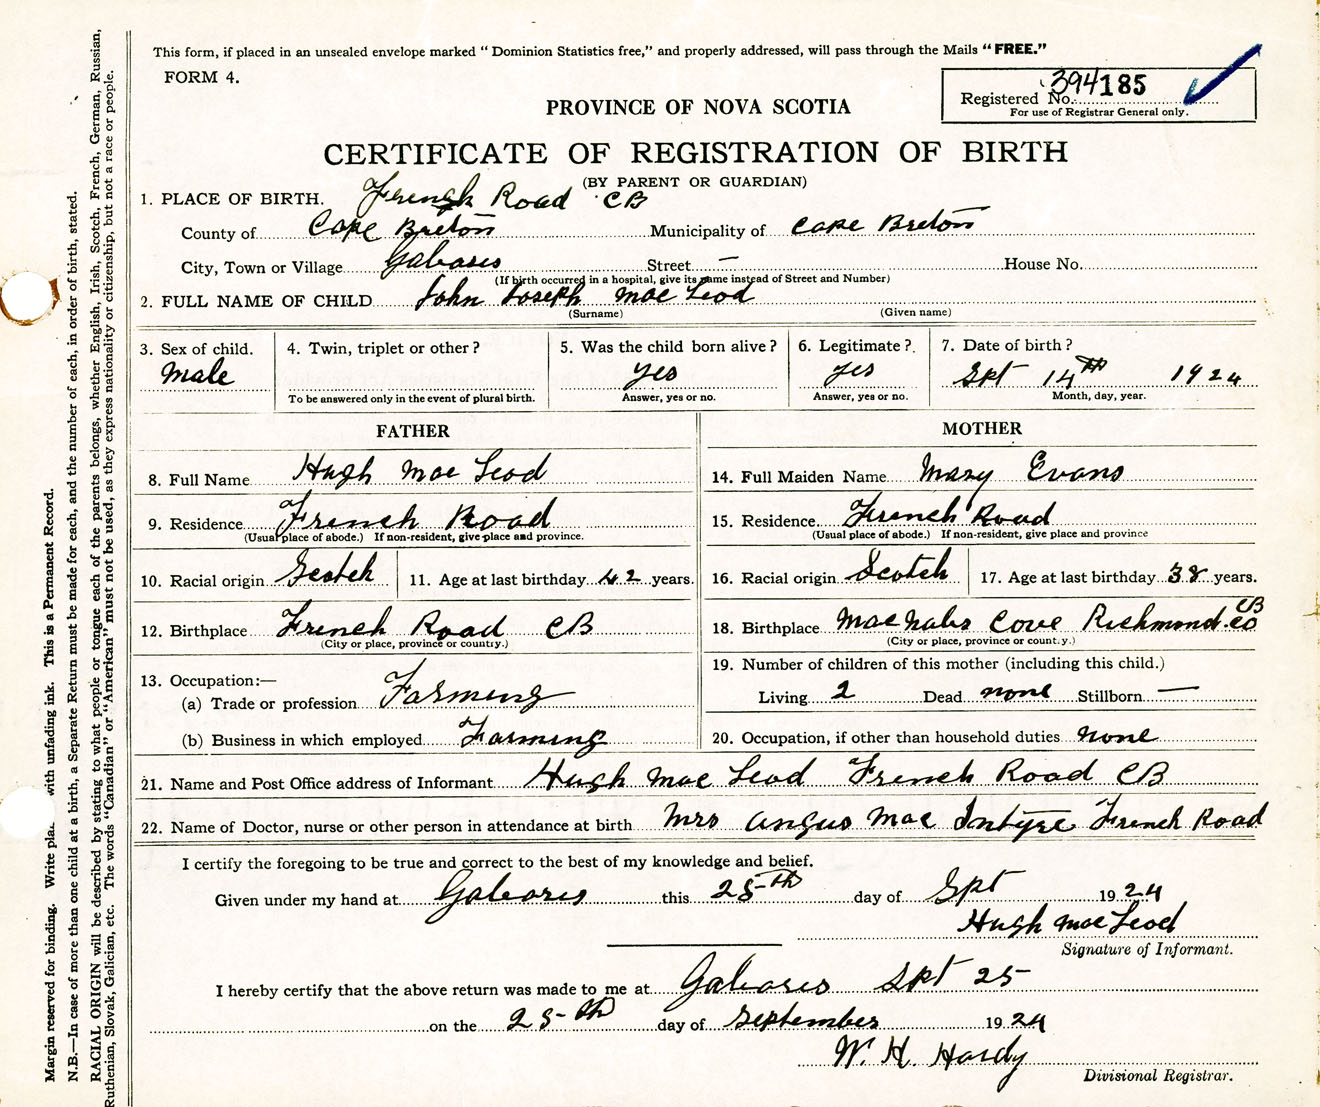 This form, if placed in an unsealed envelope marked "Dominion Statistics free," and properly addressed, will pass through the Mails "FREE."
FORM 4.
394185
Registered No.
For use of Registrar General only.
PROVINCE OF NOVA SCOTIA
CERTIFICATE OF REGISTRATION OF BIRTH
(BY PARENT OR GUARDIAN)
1. PLACE OF BIRTH. French Road CB
County of Cape Breton Municipality of Cape Breton
City, Town or Village Gabarus Street — House No.
(If birth occurred in a hospital, give its name instead of Street and Number)
2. FULL NAME OF CHILD John Joseph Mac Leod
(Surname) (Given name)
3. Sex of child. 4. Twin, triplet or other? 5. Was the child born alive? 6. Legitimate? 7. Date of birth?
Male yes yes Spt 14th 1924
To be answered only in the event of plural birth. Answer, yes or no. Answer, yes or no. Month, day, year.
FATHER MOTHER
8. Full Name Hugh Mac Leod 14. Full Maiden Name Mary Evans
9. Residence French Road 15. Residence French Road
(Usual place of abode.) If non-resident, give place and province. (Usual place of abode.) If non-resident, give place and province
10. Racial origin Scotch 11. Age at last birthday 42 years. 16. Racial origin Scotch 17. Age at last birthday 38 years.
12. Birthplace French Road CB 18. Birthplace MacNabs Cove Richmond Co CB
(City or place, province or country.) (City or place, province or country.)
13. Occupation:— 19. Number of children of this mother (including this child.)
(a) Trade or profession Farming Living 2 Dead none Stillborn —
(b) Business in which employed Farming 20. Occupation, if other than household duties none
21. Name and Post Office address of Informant Hugh Mac Leod French Road CB
22. Name of Doctor, nurse or other person in attendance at birth Mrs Angus Mac Intyre French Road
I certify the foregoing to be true and correct to the best of my knowledge and belief.
Given under my hand at Gabarus this 25th day of Spt 1924
Hugh Mac Leod
Signature of Informant.
I hereby certify that the above return was made to me at Gabarus Spt 25
on the 25th day of September 1924
W. H. Hardy
Divisional Registrar.
Margin reserved for binding. Write with unfading ink. This is a Permanent Record.
N.B.—In case of more than one child at a birth, a Separate Return must be made for each, and the number of each, in order of birth, stated.
RACIAL ORIGIN will be described by stating to what people or tongue each of the parents belongs, whether English, Irish, Scotch, French, German, Russian,
Ruthenian, Slovak, Galician, etc. The words "Canadian" or "American" must not be used, as they express nationality or citizenship, but not a race or people.